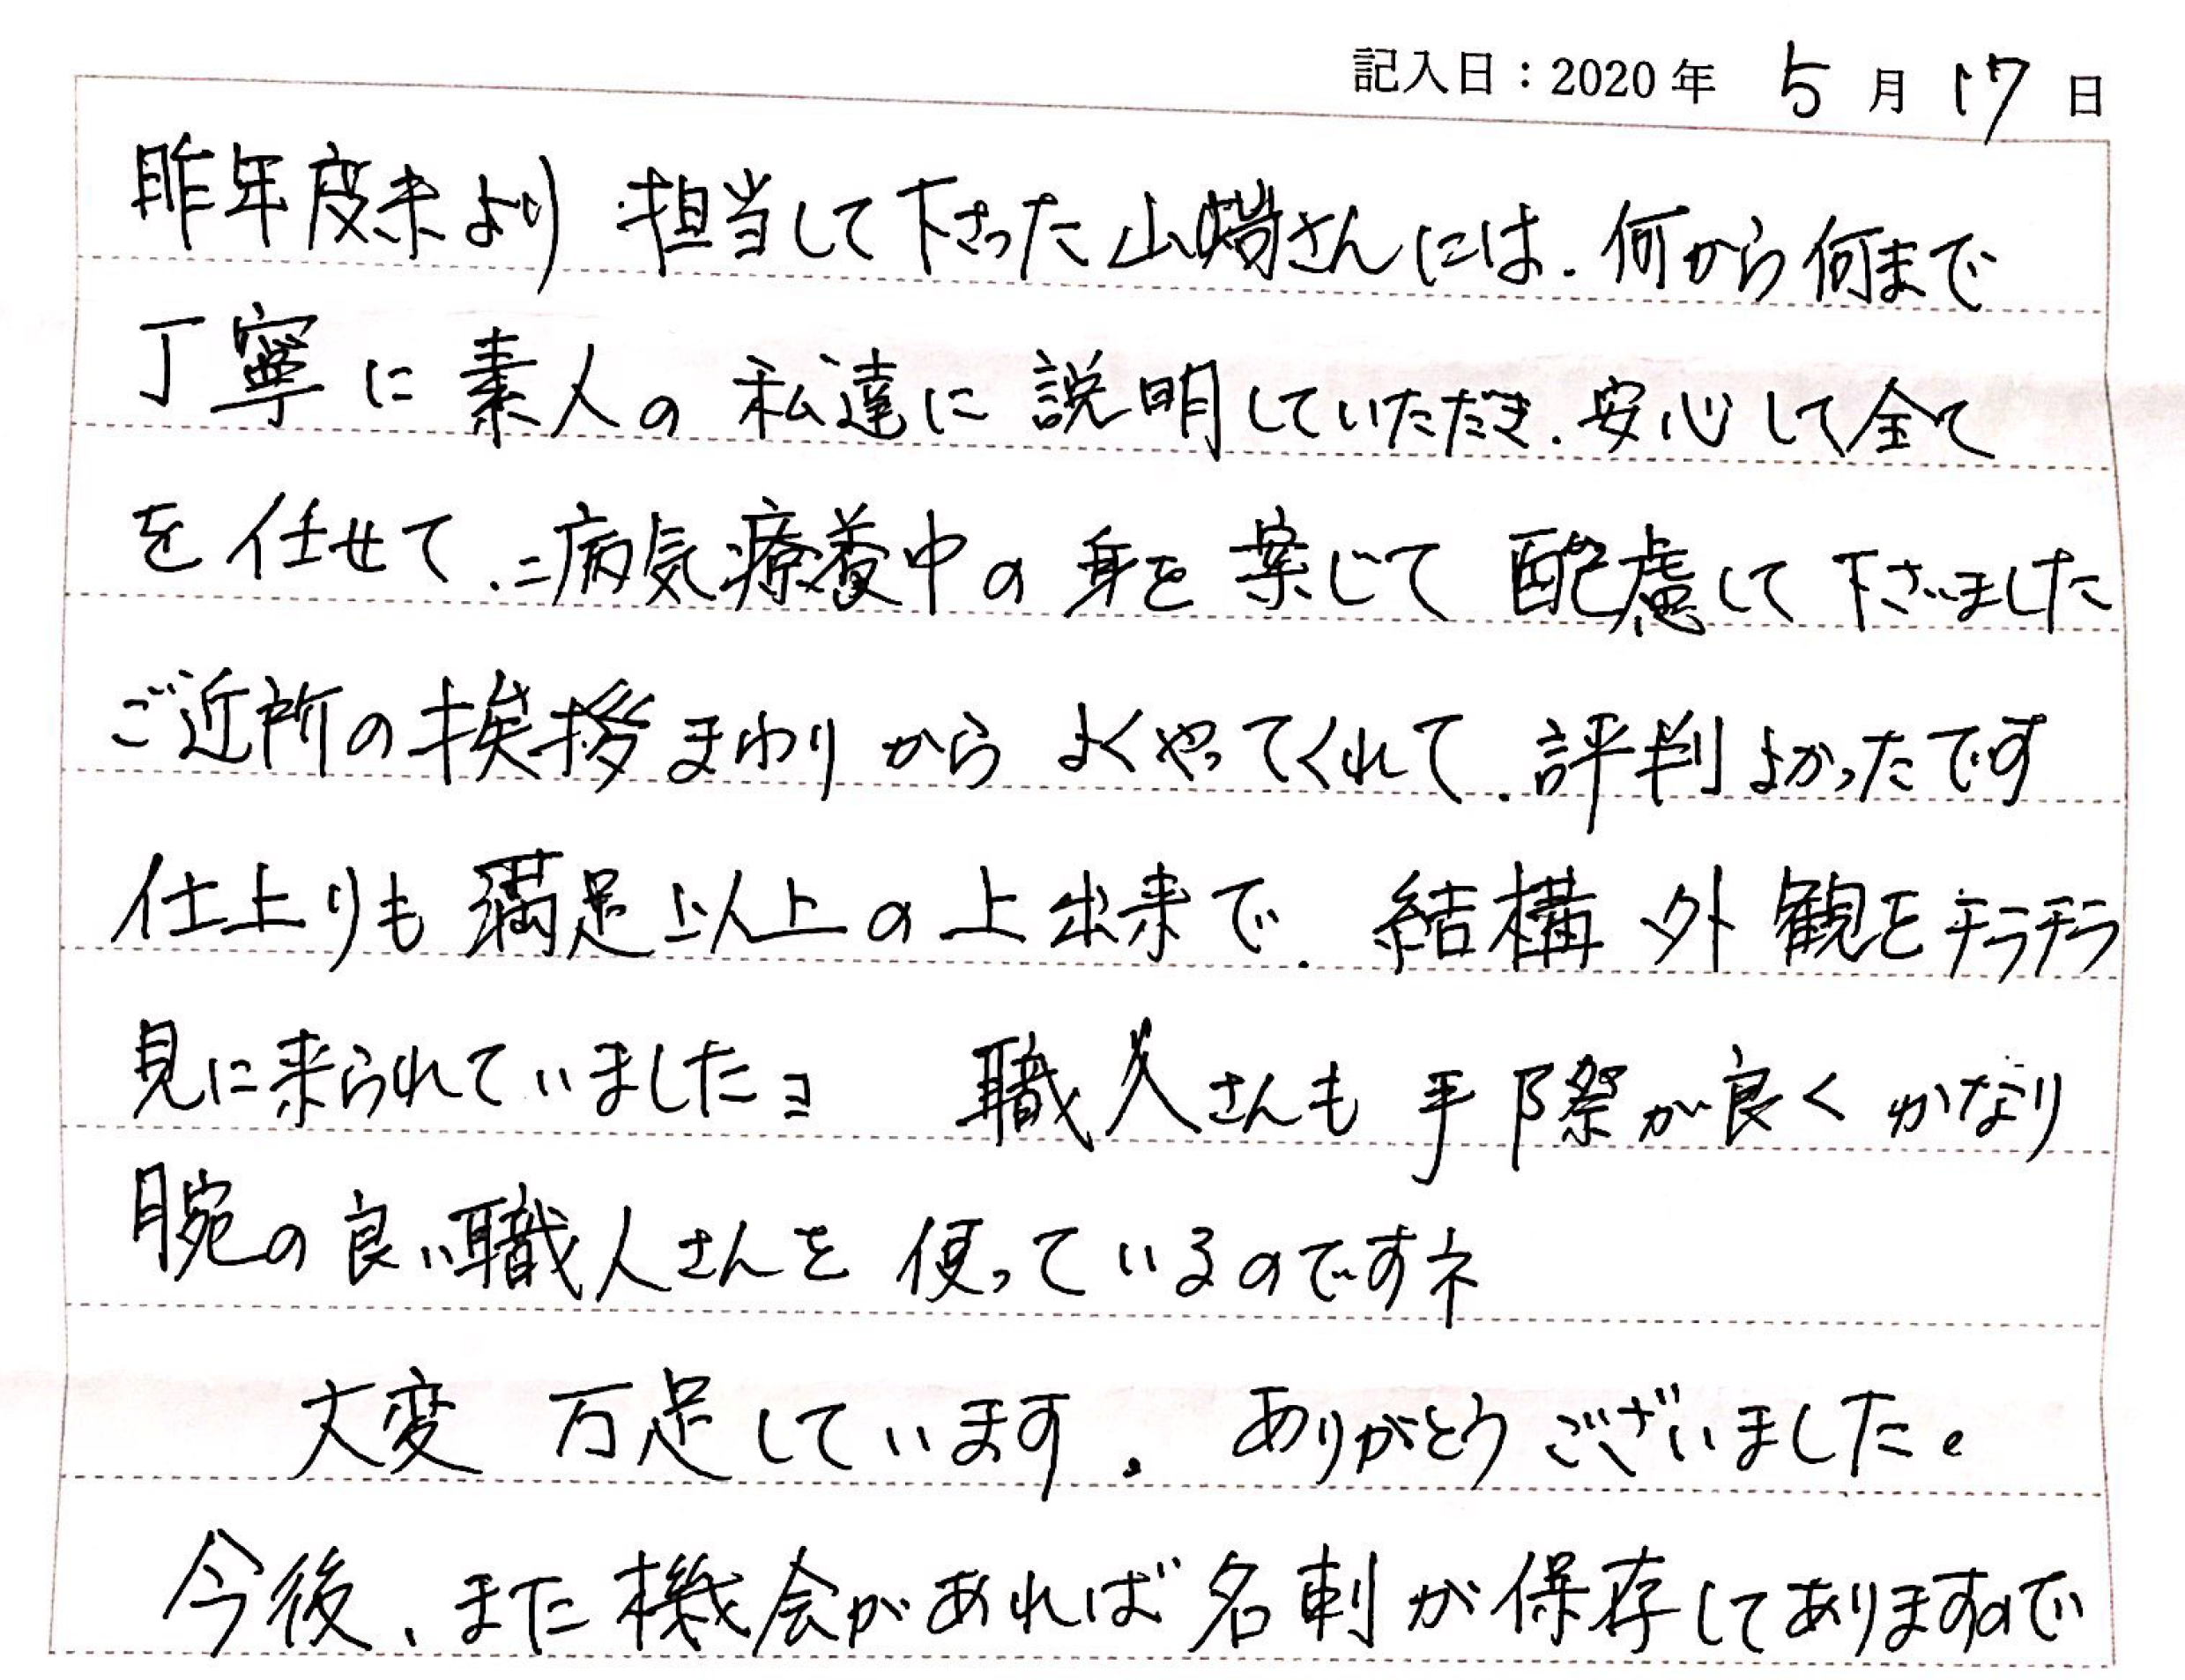 記入日：2020年 5月17日
昨年度末より 担当して下さった山端さんには、何から何まで
丁寧に素人の私達に説明していただき、安心して全て
を任せて、病気療養中の身を案じて配慮して下さいました
ご近所の挨拶まわりからよくやってくれて、評判よかったです
仕上りも満足以上の上出来で、結構外観をチラチラ
見に来られていましたヨ 職人さんも手際が良くかなり
腕の良い職人さんを使っているのですネ
大変 万足しています。ありがとうございました。
今後、また機会があれば名刺が保存してありますので